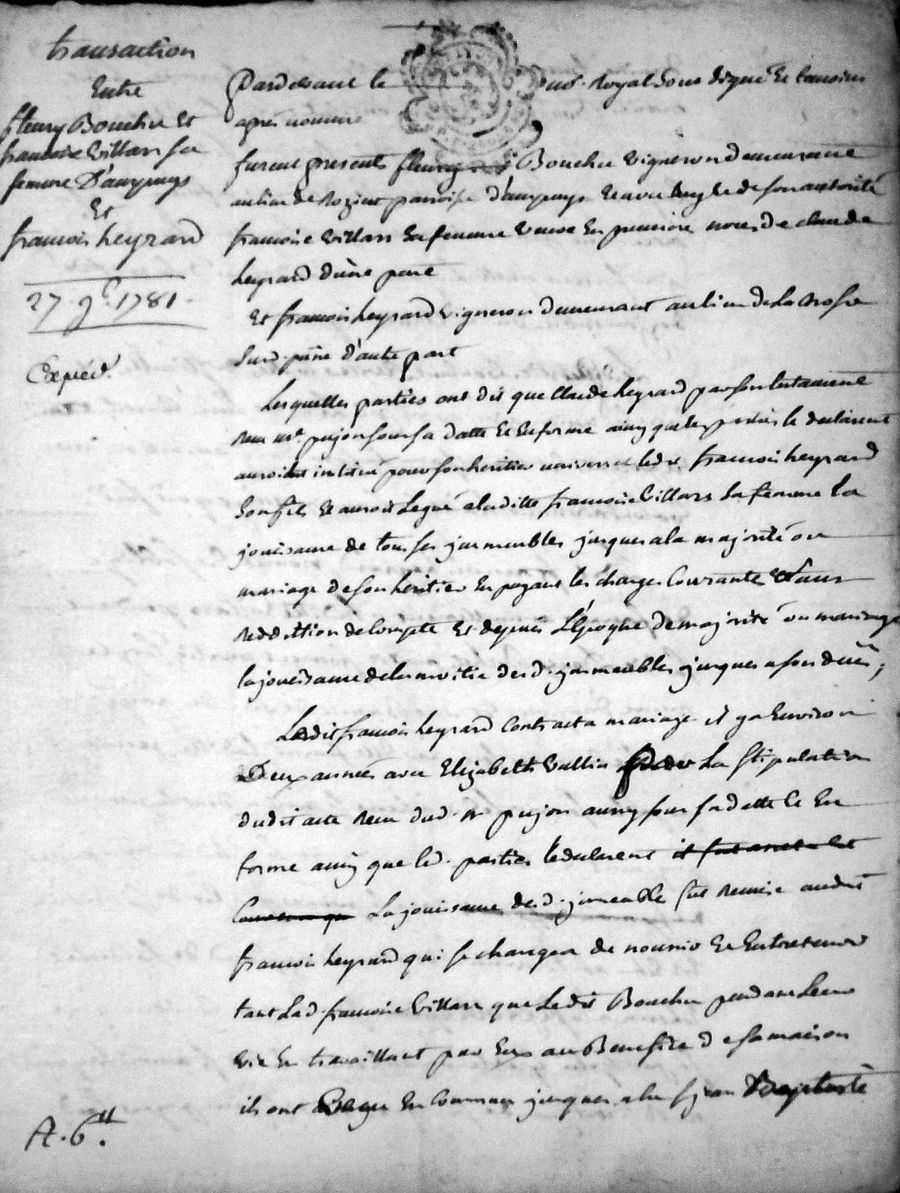 transaction
Entre
fleury Bouchu Et
francoise Villars sa
femme D'ampuys
Et
francois heyrard
27 9b. 1781.
Expiéd.
Pardevant le no.re Royal Sous signé Et temoins
apres nommés
furent presents fleury Bouchu vigneron demeurant
au lieu de Rozier parroisse d'ampuys Et avec luy Et de son autorité
francoise Villars sa femme veuve En premiere noces de claude
heyrard d'une part
Et francois heyrard vigneron demeurant au lieu de La Rosse
sur d'autre part
Lesquelles parties ont dit que Claude heyrard par son testament
Reçu m.e pujon sous sa datte Et En forme ainsy que les parties le declarent
auroit institué pour son heritier universel led.t francois heyrard
son fils Et auroit Legué a laditte francoise Villars sa femme La
jouissance de tous ses immeubles jusques a la majorité ou
mariage de son heritier En payant les charges Courante Et sans
Reddittion de Compte Et depuis L'Epoque de majorité ou mariage
la jouissance de la moitié desd. immeubles jusques a son décès;
Ledit francois heyrard Contracta mariage il y a Environ
Deux années avec Elizabeth Vallin La stipulation
dudit acte Reçu dud. m.e pujon aussy sous sa datte Et En
forme ainsy que led. parties le declarent il fut arreté Et
La jouissance desd. immeuble fut Remise audit
francois heyrard qui se chargea de nourrir Et Entretenir
tant Lad. francoise Villars que Ledit Bouchu pendant Leur
vie En travaillant par Eux au Benefice de sa maison
ils ont En Commun jusques a la s.t jean Baptiste
A. 6.tt